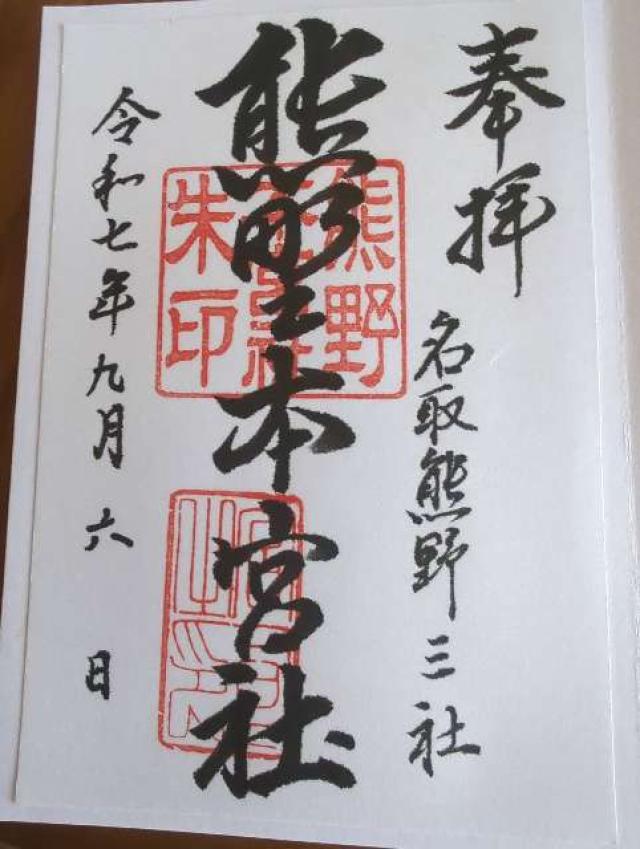 奉拝
名取熊野三社
熊野本宮社
令和七年九月六日
熊野
朱印